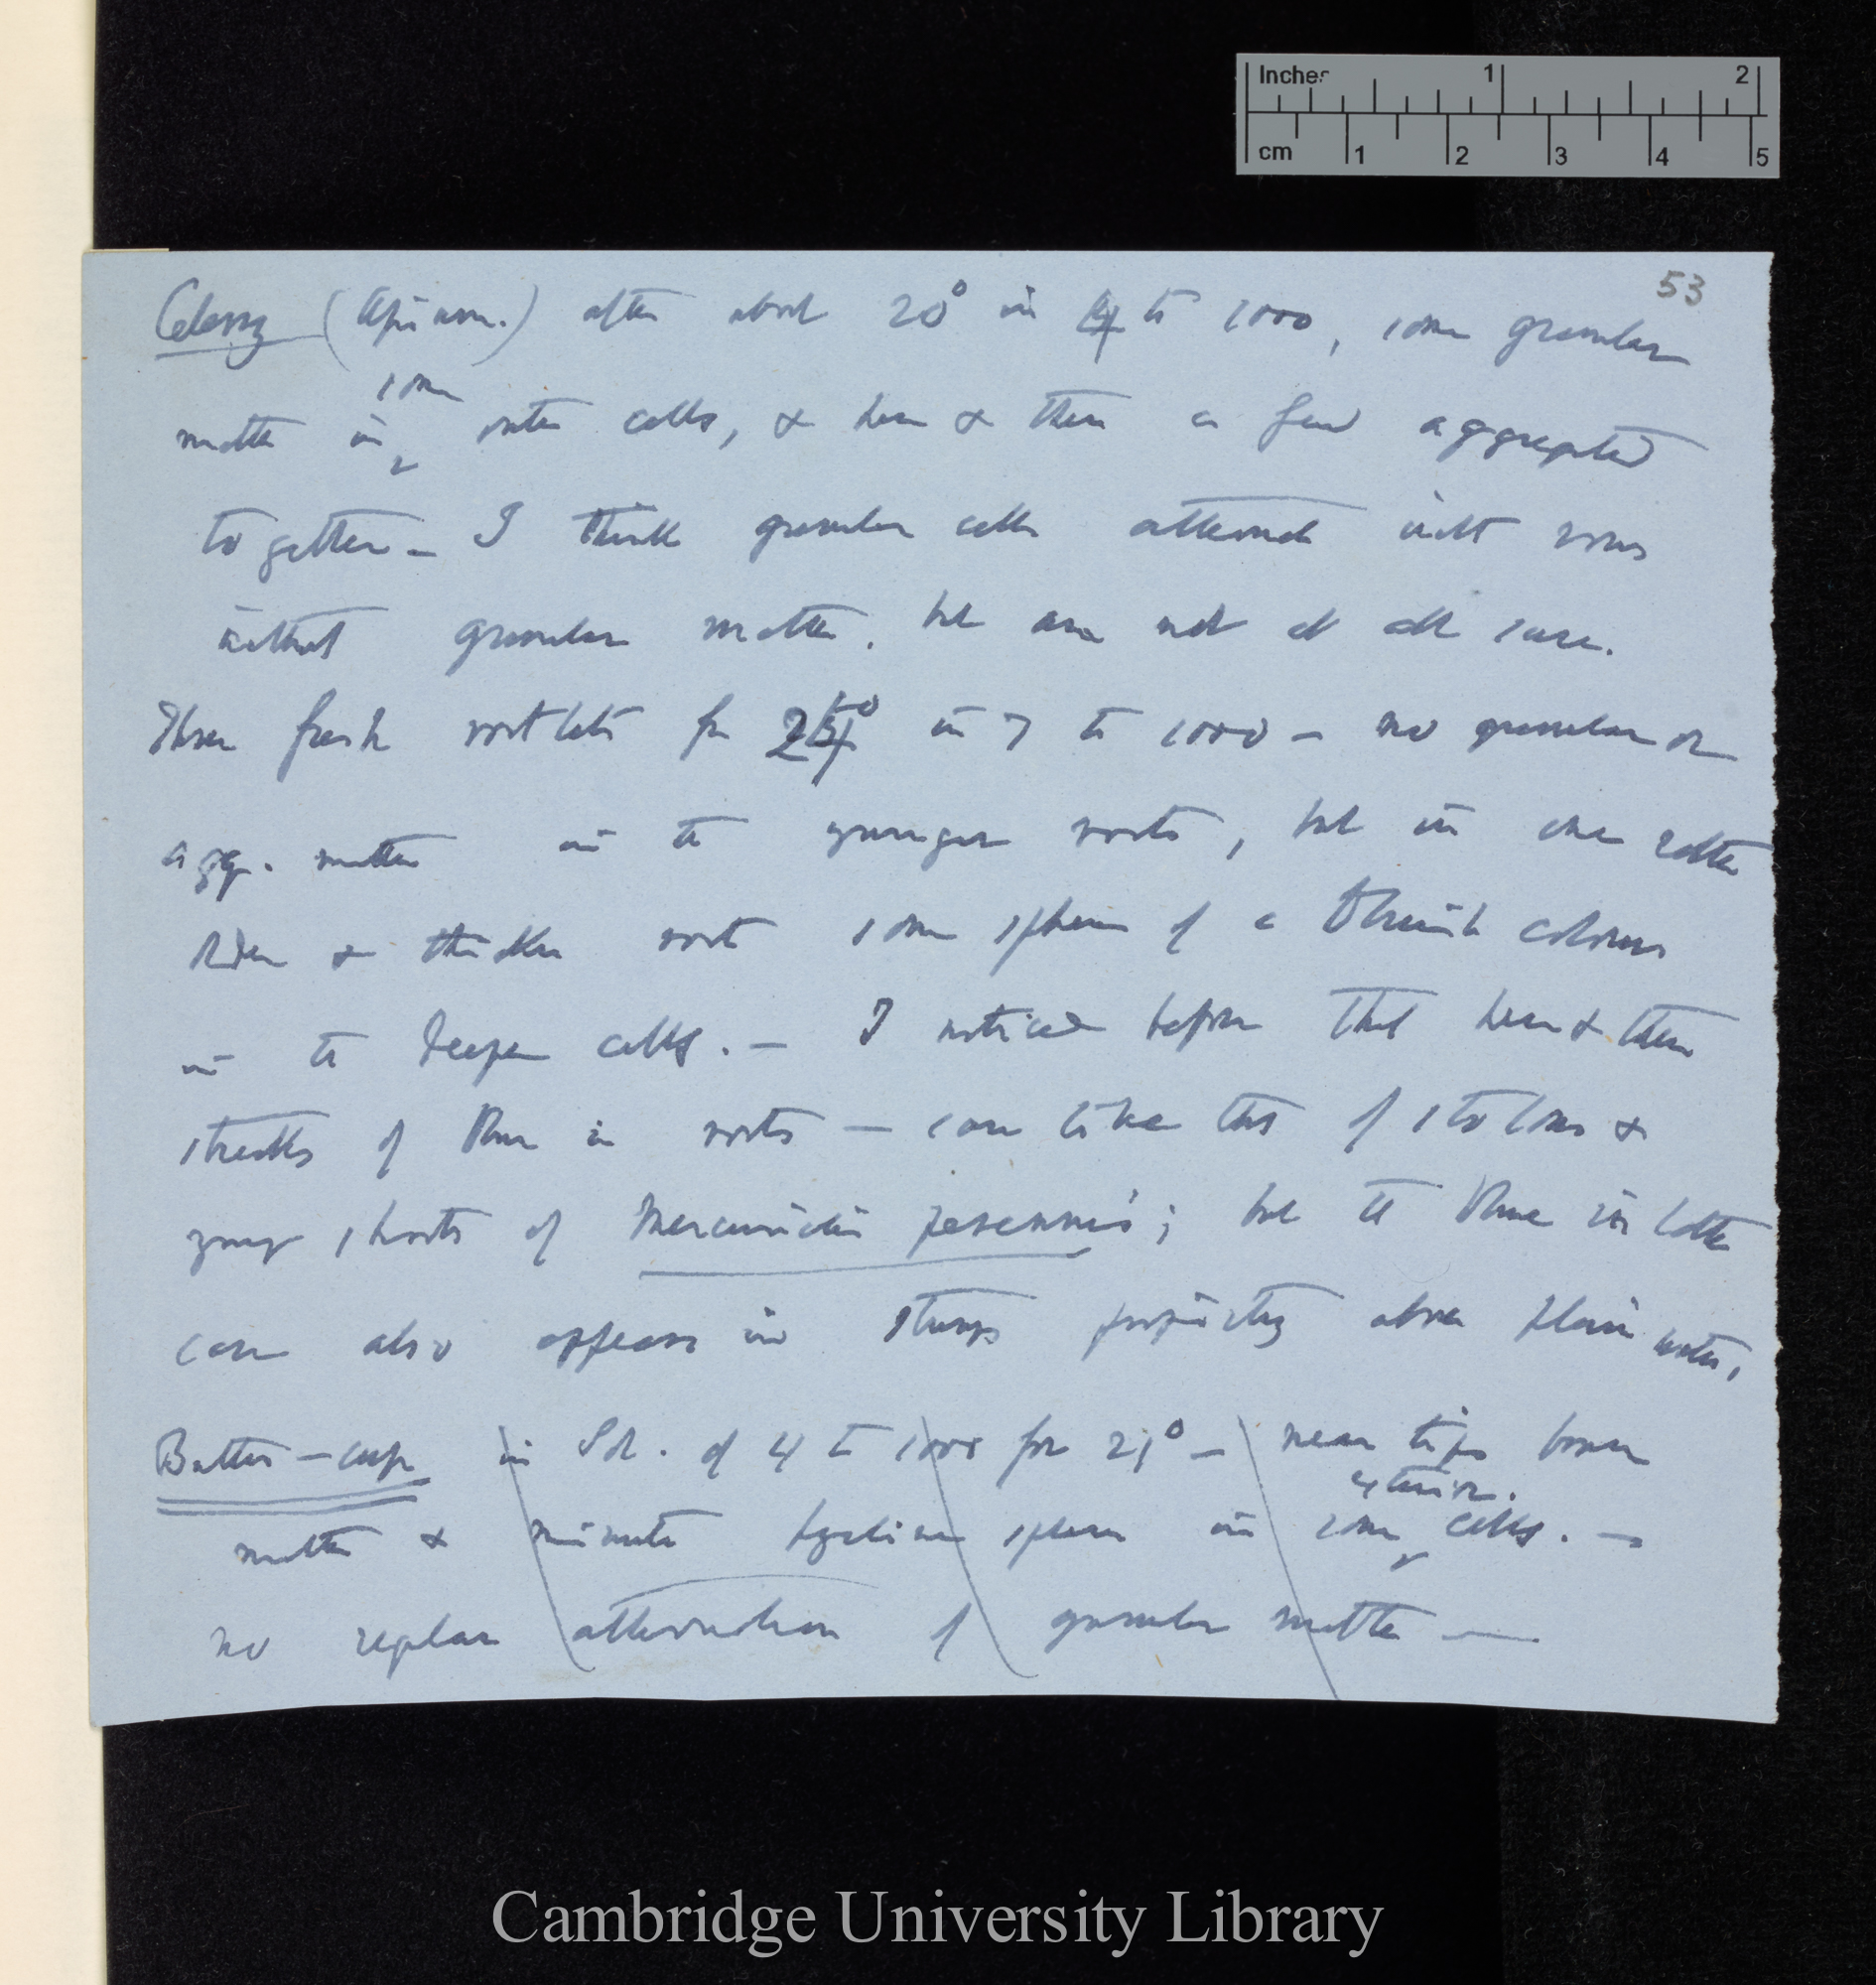 Inches 1 2
cm 1 2 3 4 5
53
Celery (Apium.) after about 20° in 4 to 1000, some granular
matter in some outer cells, & here & there a few aggregated
together — I think granular cells alternate with rows
without granular matter. but am not at all sure.
Three fresh rootlets for 24° in 7 to 1000 — no granular or
agg. matter in the younger roots, but in one rather
older & thicker root some spheres of a bluish colour
in the deeper cells. — I noticed before that here & there
streaks of blue in roots — case like that of stolons &
young shoots of Mercurialis perennis; but the blue in latter
case also appears in stumps projecting above plain water,
Butter-cup in Sol. of 4 to 1000 for 21° — near tips brown
matter & minute hyaline spheres in some exterior. cells. —
no regular alternation of granular matter —
Cambridge University Library